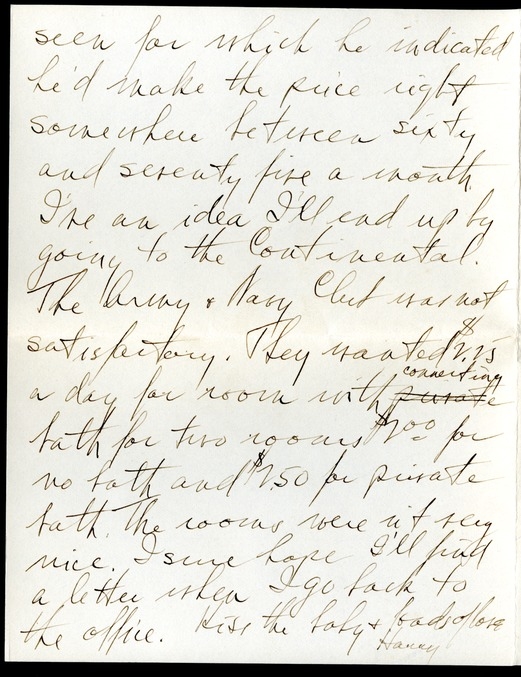 seen for which he indicated
he'd make the price right
somewhere between sixty
and seventy five a month.
I've an idea I'll end up by
going to the Continental.
The Army & Navy Club was not
satisfactory. They wanted $2.25
connecting
a day for room with private
bath for two rooms $2.00 for
no bath and $2.50 for private
bath. The rooms were n't very
nice. I sure hope I'll find
a letter when I go back to
the office. Kiss the baby & loads of love
Harry